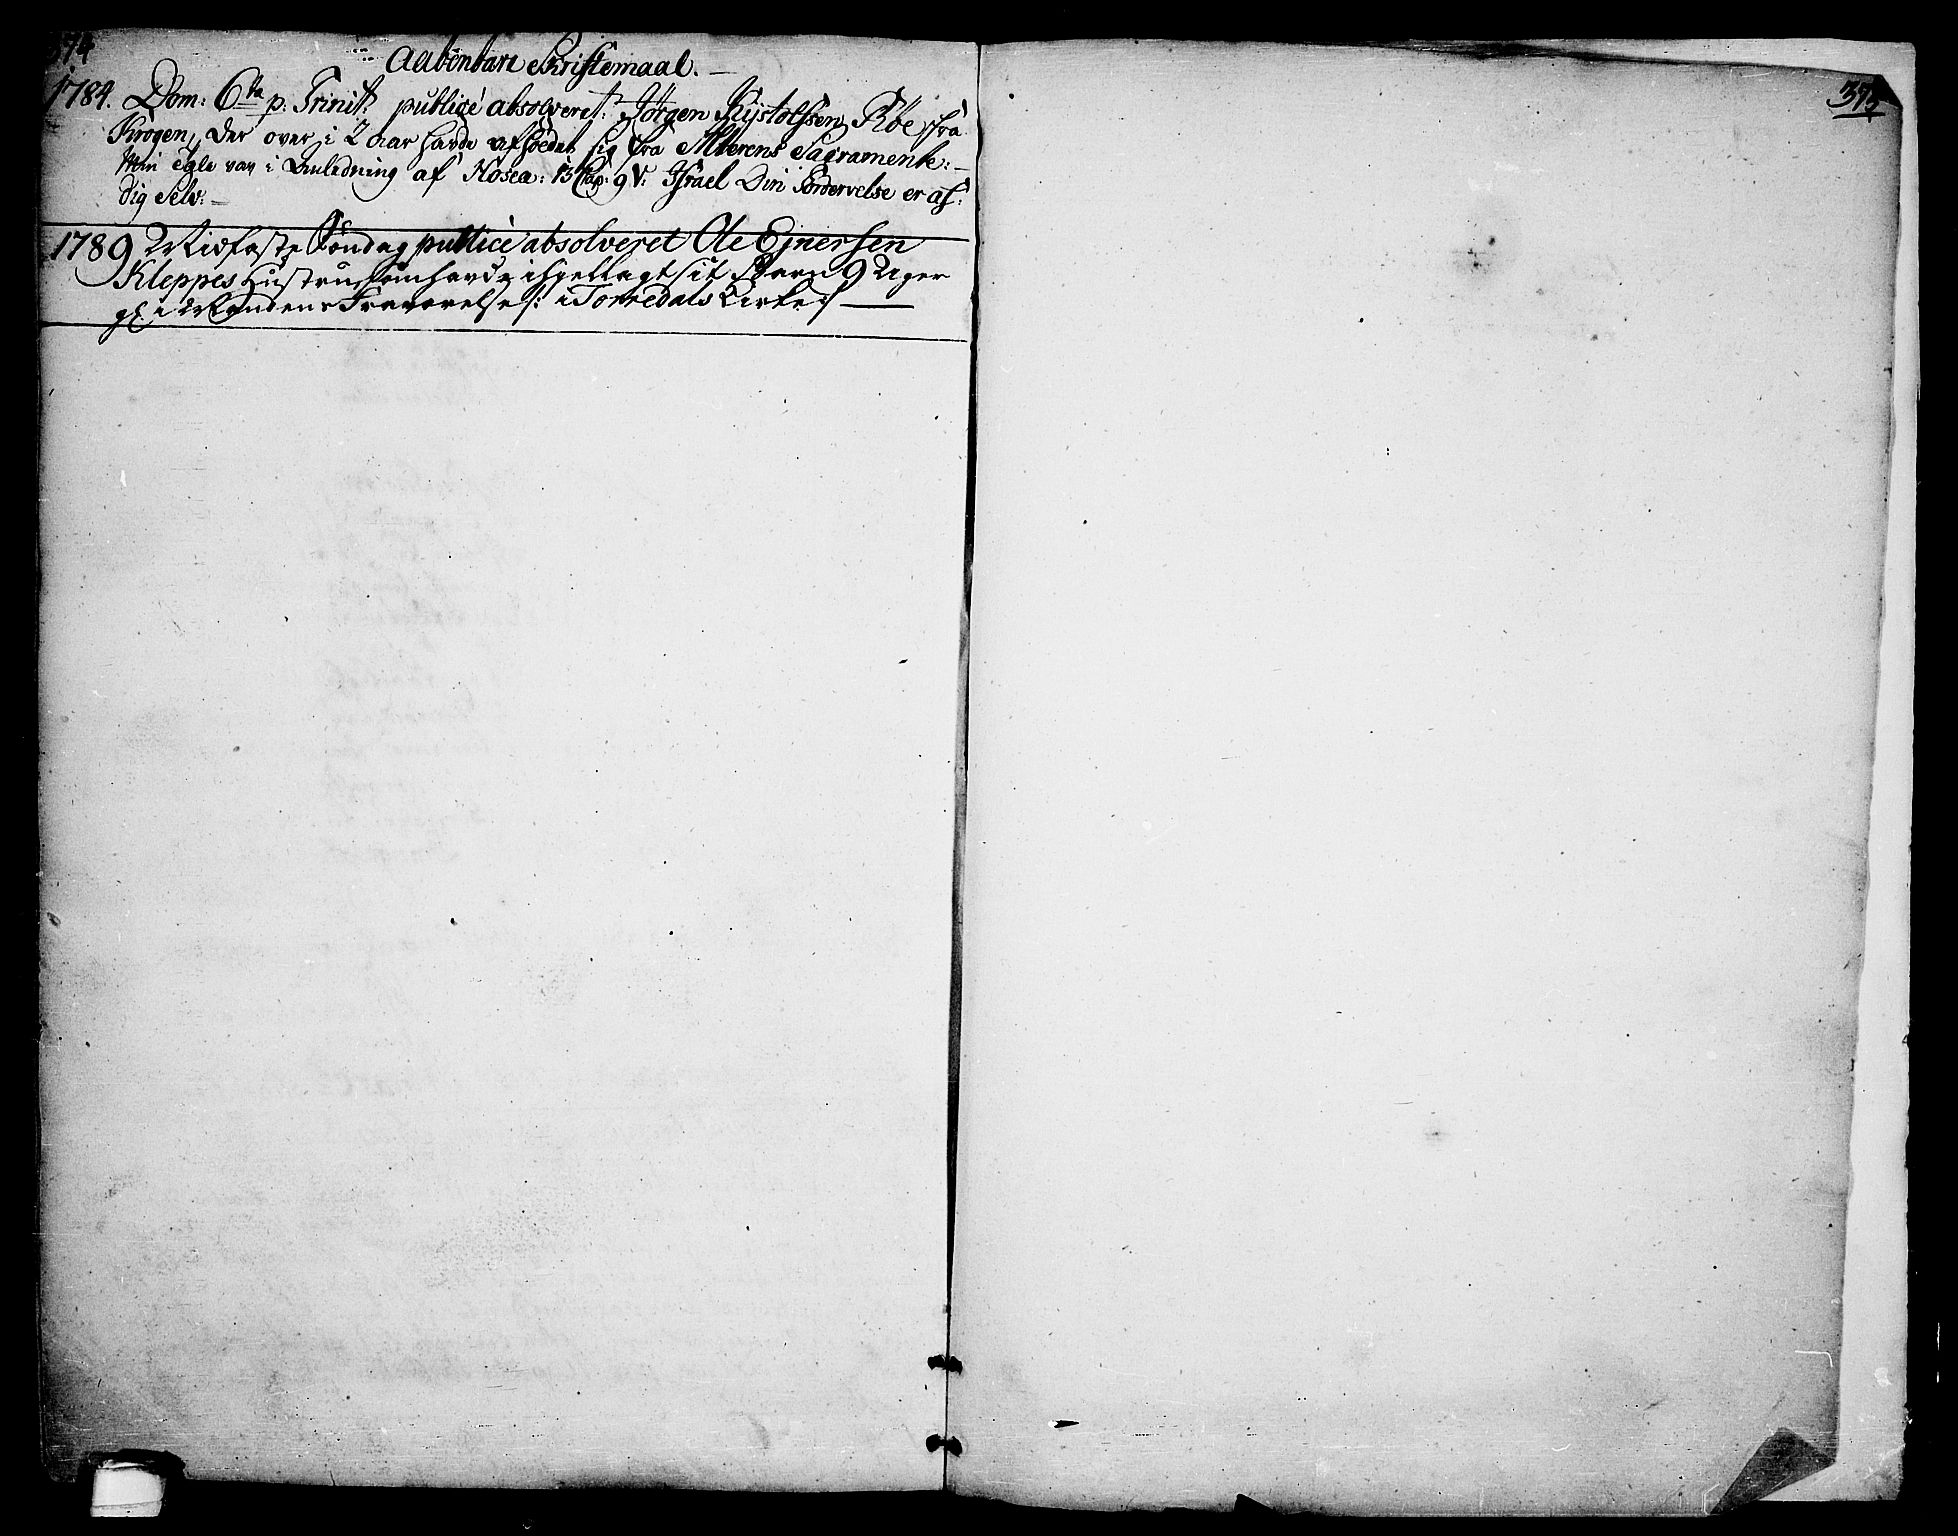 374
Aabenbare Skriftemaal.
1784. Dom: 6ta p: Trinit: publicè absolveret: Jörgen Kystolfsen Röe fra
Krogen, der over i 2 aar havde afholdet sig fra Alterens Sacramente:
Min Text var i Anledning af Hosea: 13 Cap: 9 V: Israel Din Fordervelse er af
dig Selv:
1789 Midfaste Söndag publicè absolveret Ole Ejnersen
Kleppes Hustru som havde ihjellagt sit Barn 9 Uger
gl. i Mandens Fraværelse /: i Torredals Kirke :/
375